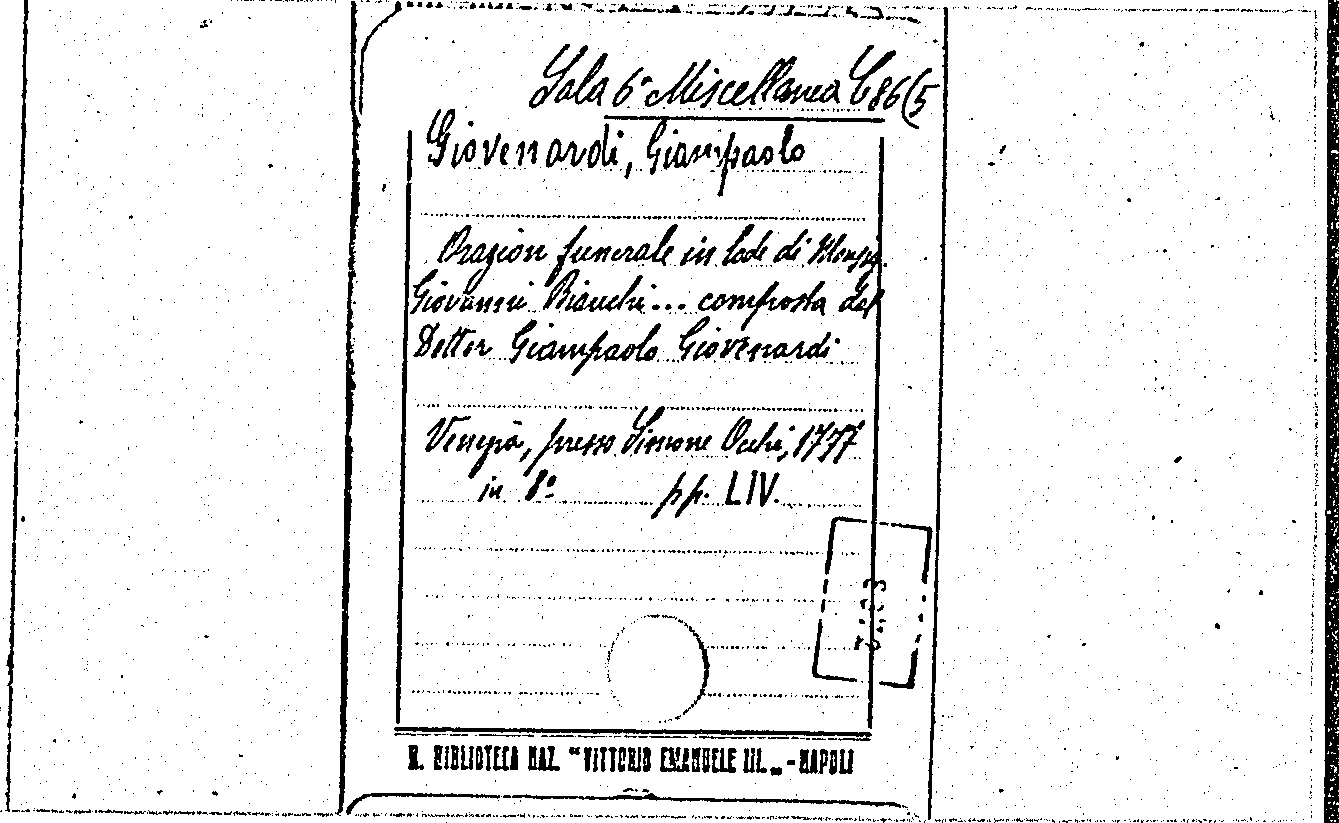 Sala 6ª Miscellanea C 86(5
Giovenardi, Giampaolo
Orazion funerale in lode di Monsig.
Giovanni Bianchi... composta dal
Dottor Giampaolo Giovenardi
Venezia, presso Simone Occhi, 1777
in 8º pp. LIV.
R. BIBLIOTECA NAZ. "VITTORIO EMANUELE III." - NAPOLI